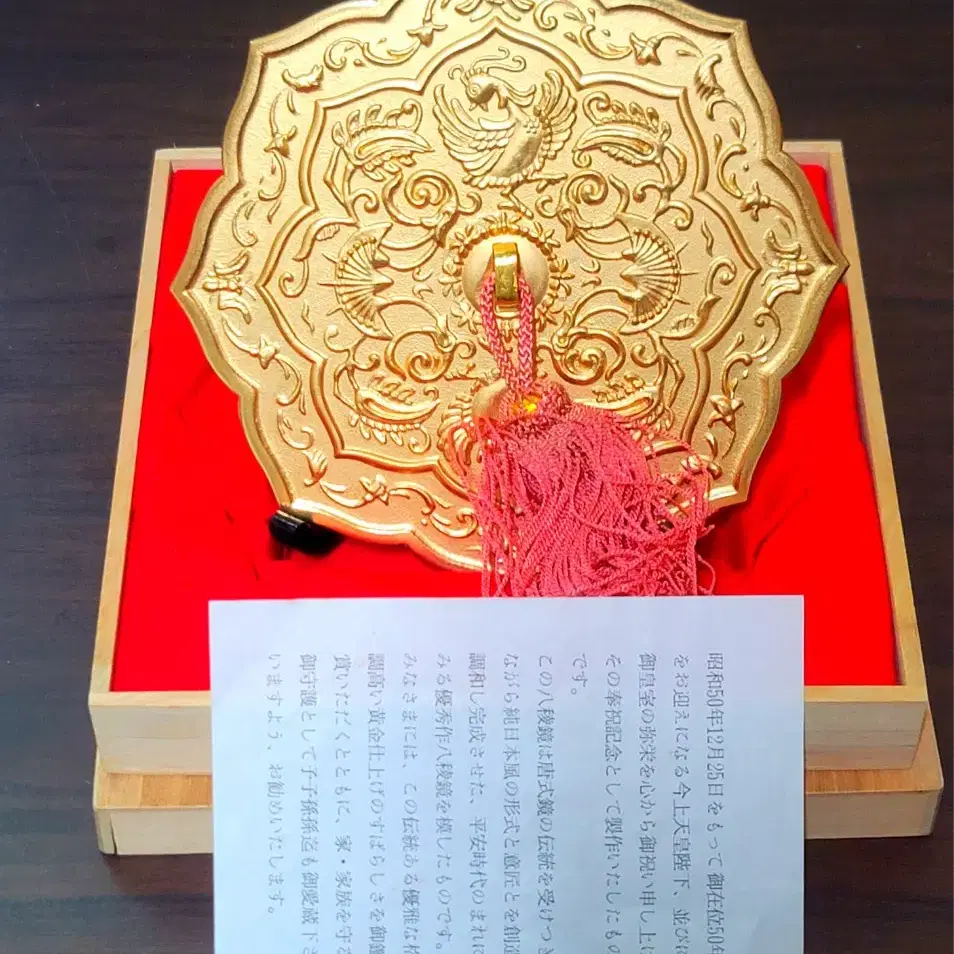 昭和50年12月25日をもって御在位50年
をお迎えになる今上天皇陛下、並びに
御皇室の弥栄を心から御祝い申し上げ
その奉祝記念として製作いたしたもの
です。
この八稜鏡は唐式鏡の伝統を受けつぎ
ながら純日本風の形式と意匠とを創造
調和し完成させた、平安時代のまれに
みる優秀作八稜鏡を模したものです。
みなさまには、この伝統ある優雅な格
調高い黄金仕上げのすばらしさを御鑑
賞いただくとともに、家・家族を守る
御守護として子子孫孫迄も御愛蔵下さ
いますよう、お勧めいたします。